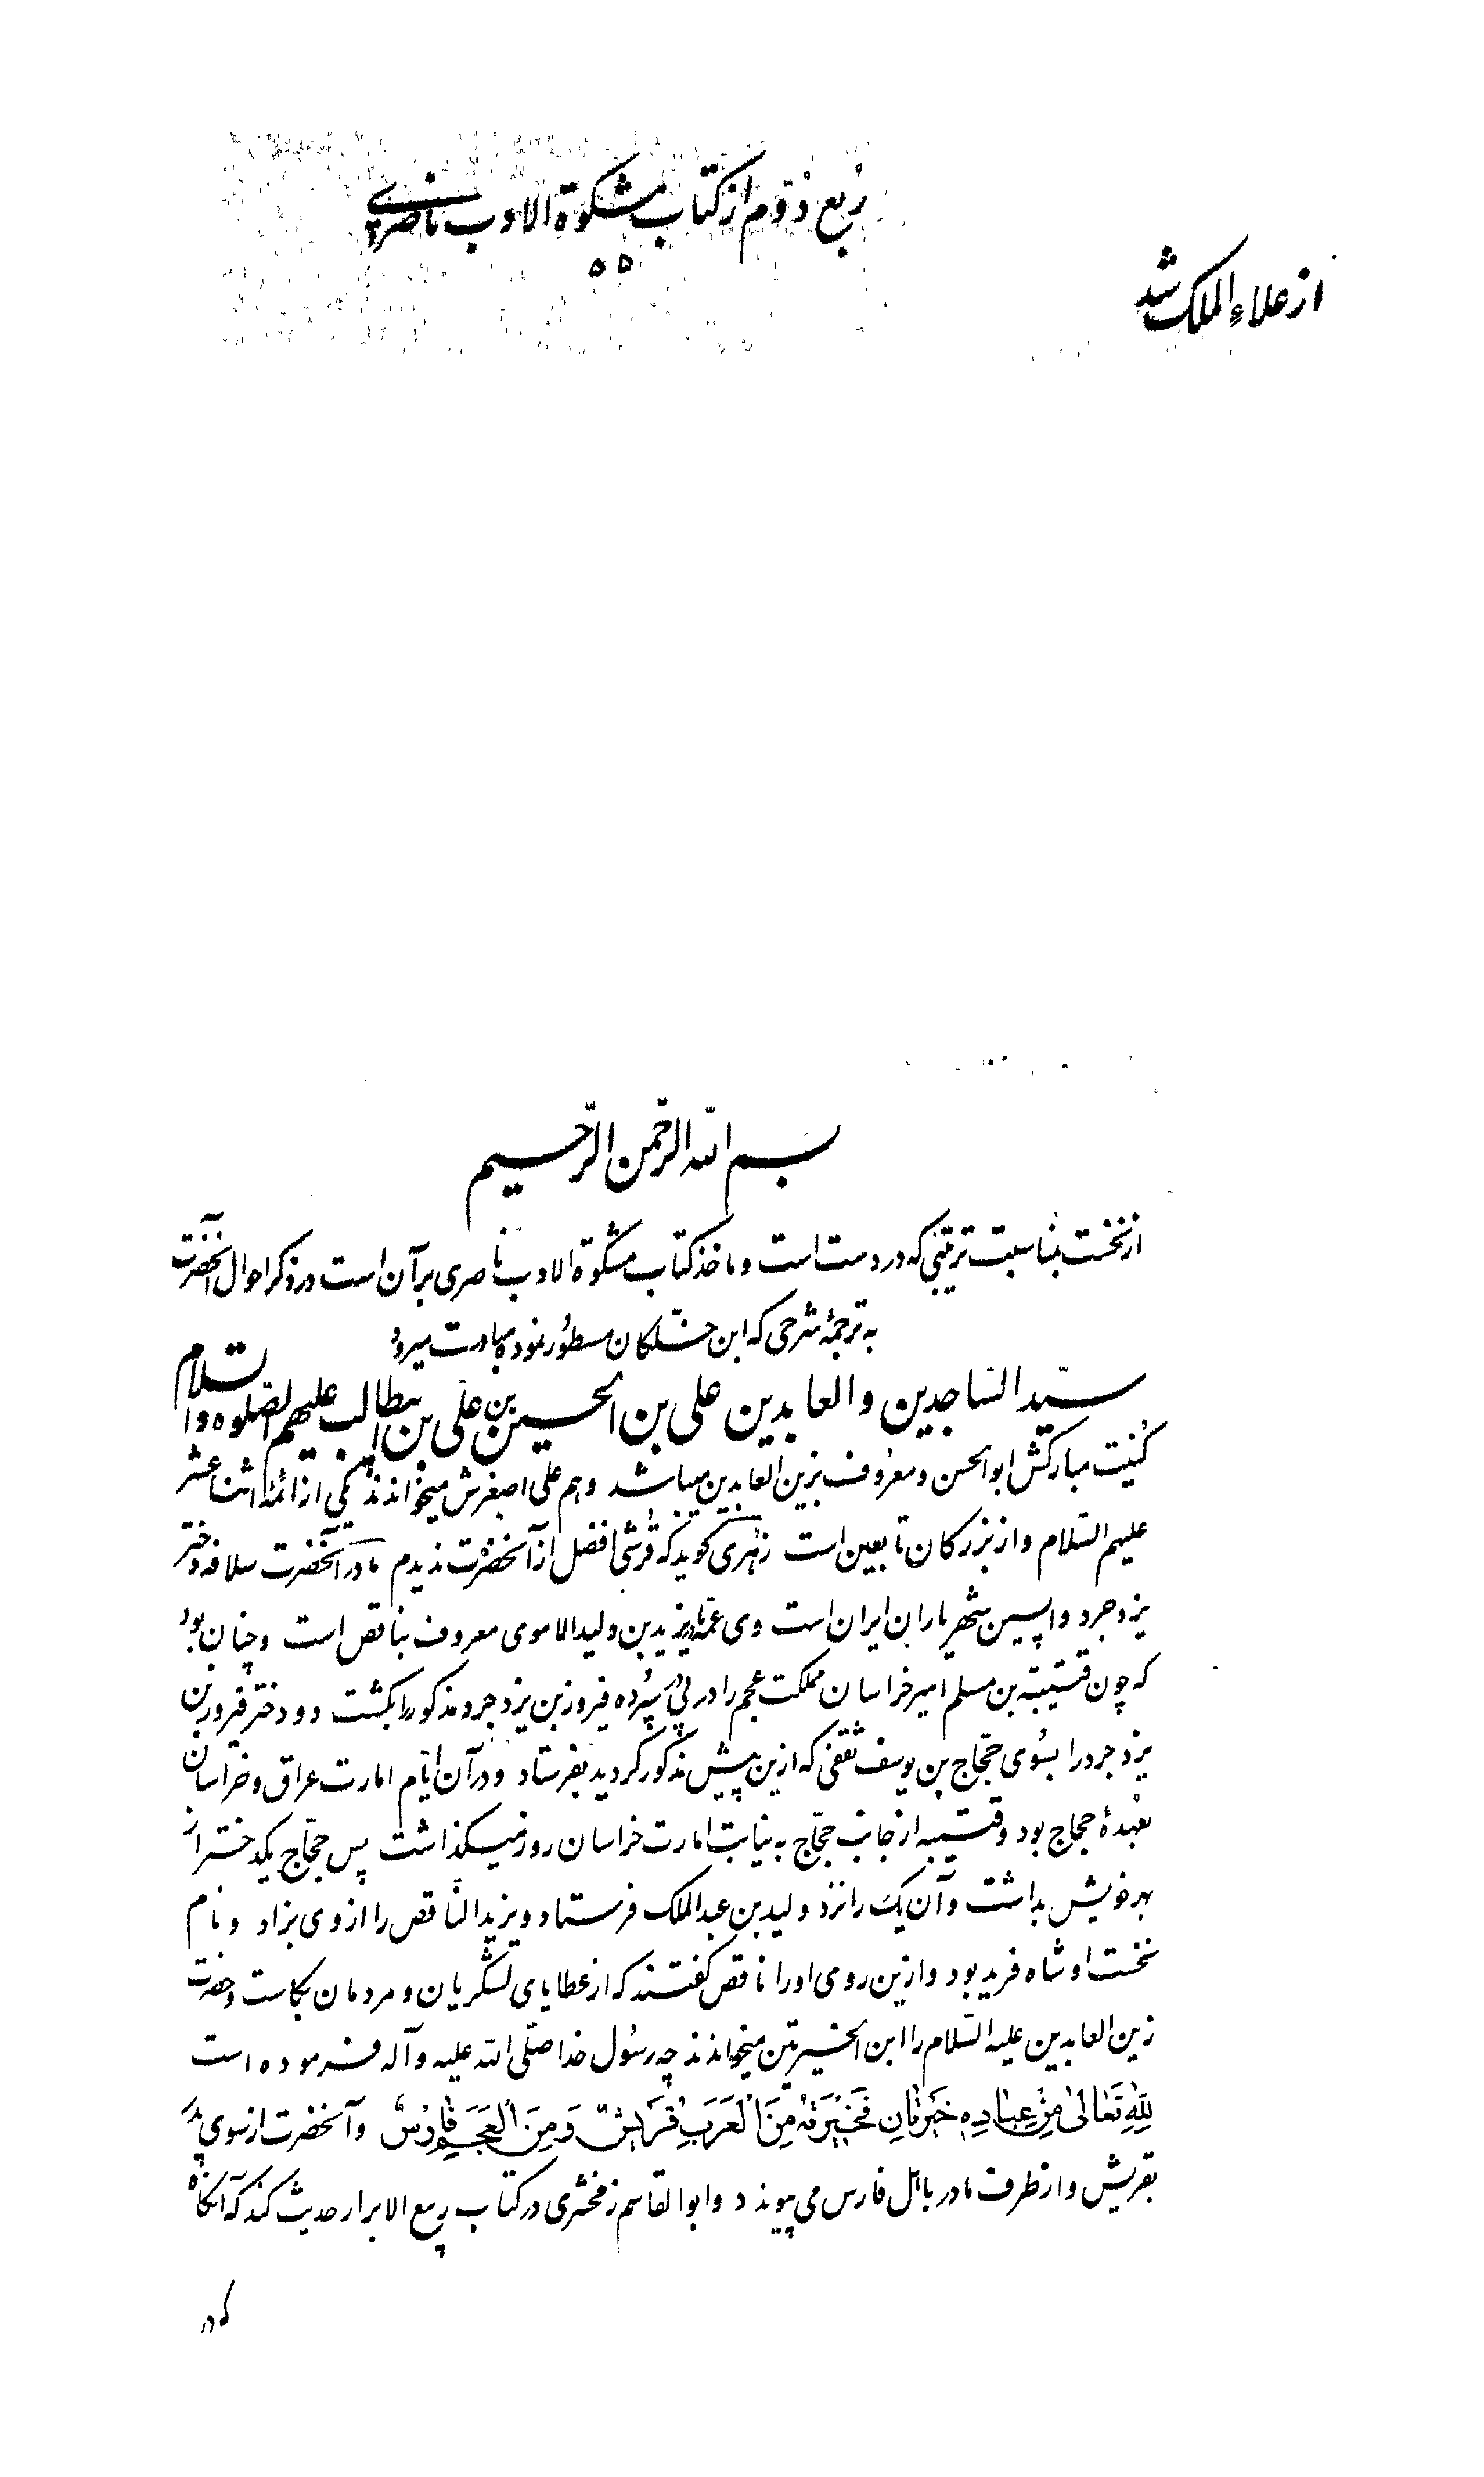 ربع دوّم از کتاب مشکوة الادب ناصری
از علاء الملک شد
بسم الله الرّحمن الرّحیم
از نخست بمناسبت ترتیبی که در دست است و ماخذ کتاب مشکوة الادب ناصری بر آن است در ذکر احوال آنحضرت
به ترجمهٔ شرحی که ابن خلّکان مسطور نموده مبادرت میرود
سیّد السّاجدین والعابدین علی بن الحسین بن علی بن ابیطالب علیهم الصّلوه والسّلام
کُنیت مبارکش ابوالحسن و معرُوف بزین العابدین میباشد و هم علی اصغرش میخوانند یکی از ائمّهٔ اثنا عشر
علیهم السّلام و از بزرکان تابعین است زُهری کوید که قُرشی افضل از آنحضرت ندیدم مادر آنحضرت سلافه دختر
یزدجرد واپسین شهریاران ایران است وی عمّهٔ مادر یزید بن ولید الاموی معروف بناقص است و چنان بود
که چون قتیبة بن مسلم امیر خراسان مملکت عجم را در پی سپرده فیروز بن یزدجرد مذکور را بکشت دو دختر فیروز بن
یزدجرد را بسُوی حجّاج بن یوسف ثقفی که ازین پیش مذکور کردید بفرستاد و در آن ایّام امارت عراق و خراسان
بعُهدهٔ حجاج بود و قتیبه از جانب حجّاج به نیابت امارت خراسان روز میکذاشت پس حجّاج یکدختر از
بهر خویش بداشت و آن یک را نزد ولید بن عبدالملک فرستاد و یزید النّاقص را از وی بزاد و نام
نخست او شاه فرید بود و ازین روی او را ناقص کفتند که از عطایای لشکریان و مردمان بکاست و حضرت
زین العابدین علیه السّلام را ابن الخیرتین میخوانند چه رسُول خدا صلّی الله علیه وآله فرموده است
لِلّٰهِ تَعَالیٰ مِنْ عِبَادِهِ خِیَرَتَانِ فَخِیَرَتُهُ مِنَ الْعَرَبِ قُرَیْشٌ وَمِنَ الْعَجَمِ فَارْسٌ وآنحضرت از سوی پدر
بقریش و از طرف مادر باهل فارس می پیوندد و ابوالقاسم زمخشری در کتاب ربیع الابرار حدیث کند که آنکاه